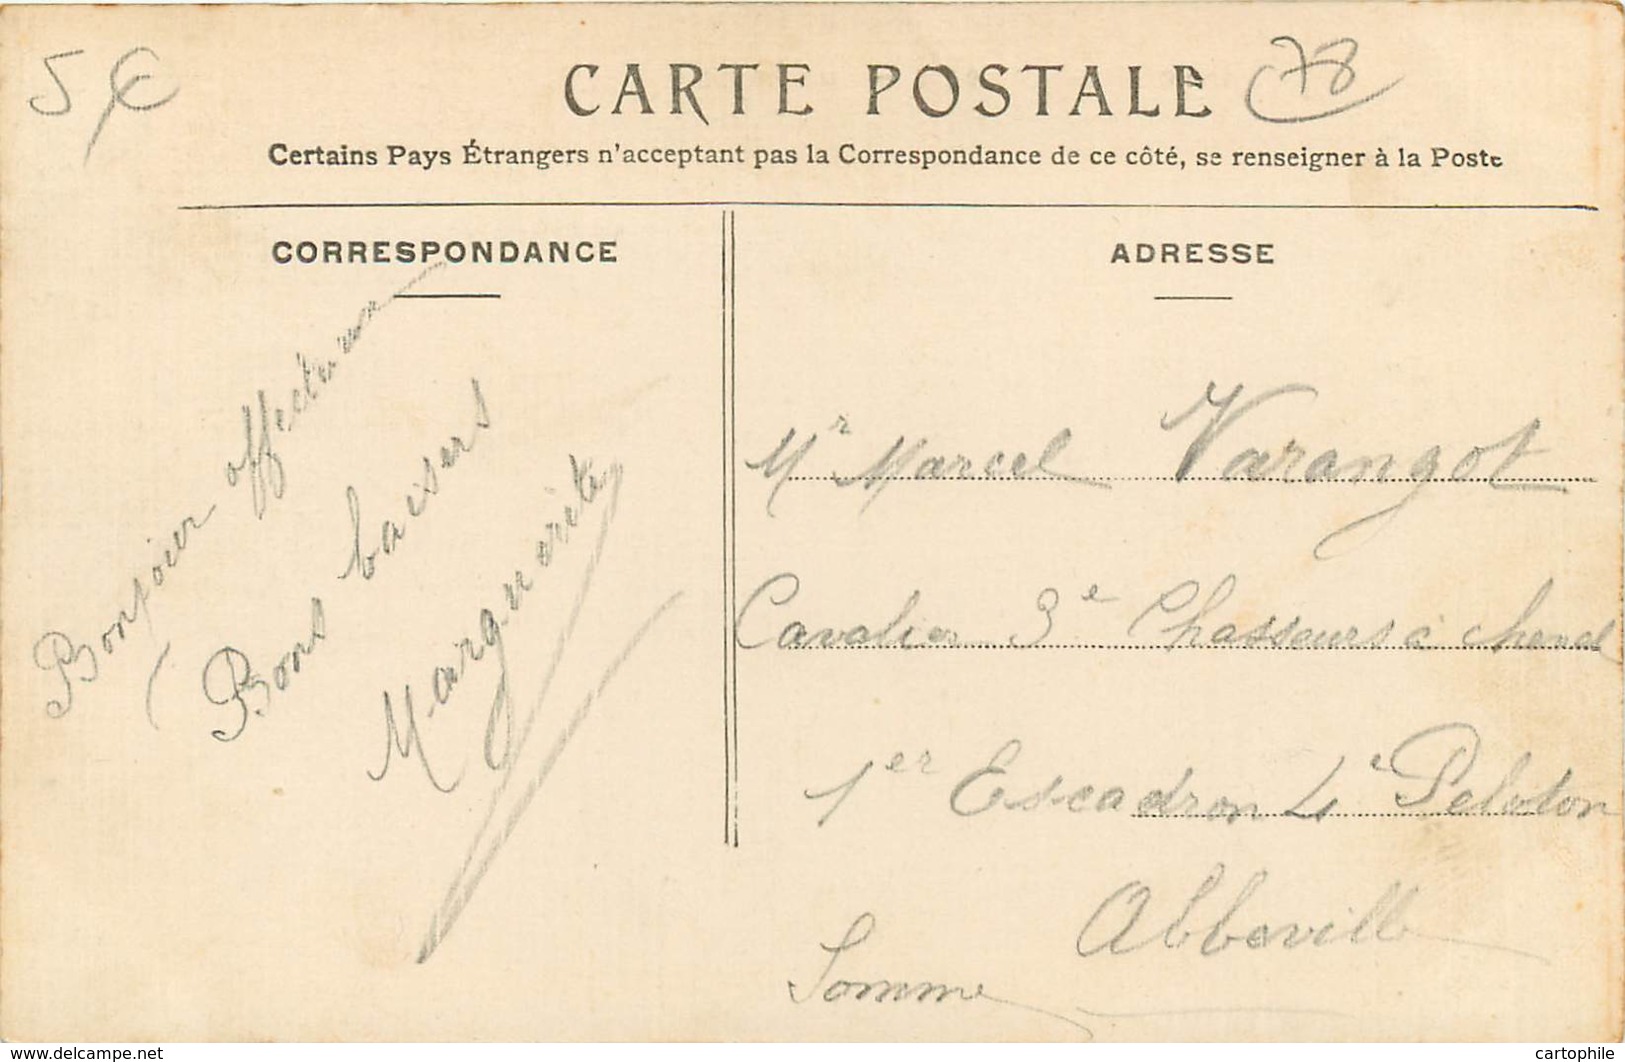 5 €
CARTE POSTALE
78
Certains Pays Étrangers n'acceptant pas la Correspondance de ce côté, se renseigner à la Poste
CORRESPONDANCE
Bonjour affectueux
Bons baisers
Marguerite
ADRESSE
Mr Marcel Varangot
Cavalier 3e Chasseurs à cheval
1er Escadron 4e Peloton
Abbeville
Somme
www.delcampe.net
cartophile